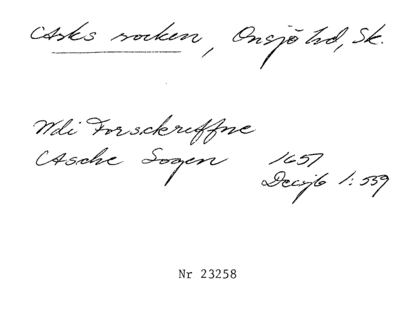 Asks socken, Onsjö hd, Sk.
Udi Forsckreffne
Asche Sogen 1657
Decijb 1:559
Nr 23258